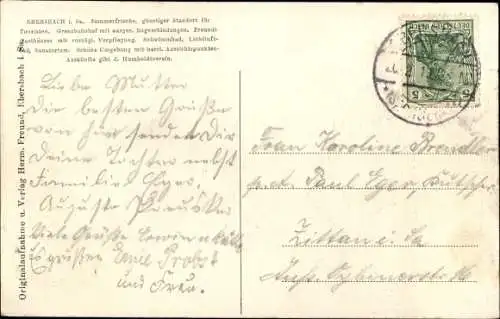 EBERSBACH i. Sa. Sommerfrische, günstiger Standort für
Touristen. Grenzbahnhof mit ausgez. Zugverbindungen. Fremd.
Gasthäuser mit vorzügl. Verpflegung. Schwimmbad, Lichtluft-
bad, Sanatorium. Schöne Umgebung mit herrl. Aussichtspunkten.
Auskünfte gibt d. Humboldtverein.
Originalaufnahme u. Verlag Herm. Freund, Ebersbach i. Sa.
Liebe Mutter
die besten Grüße
von hier senden Dir
Deine Tochter nebst
Familie
Auguste
Viele Grüße
zu grüßen Emil Probst
und Frau.
5 5
Frau Karoline Brendler
Paul Eger, Kutscher
Zittau i. Sa
Äuß. Oybinerstr. 16